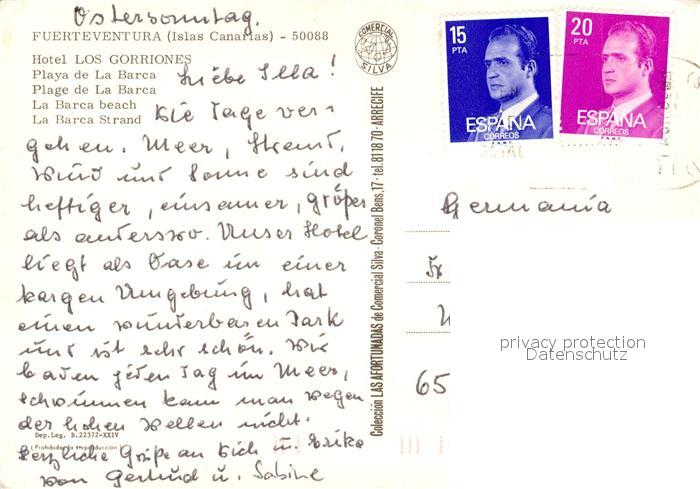 Ostersonntag.
FUERTEVENTURA (Islas Canarias) - 50088
Hotel LOS GORRIONES
Playa de La Barca
Plage de La Barca
La Barca beach
La Barca Strand
Liebe Illa!
Die Tage ver-
gehen. Meer, Strand,
Wind und Sonne sind
heftiger, einsamer, größer
als anderswo. Unser Hotel
liegt als Oase in einer
kargen Umgebung, hat
einen wunderbaren Park
und ist sehr schön. Wir
baden jeden Tag im Meer,
schwimmen kann man wegen
der hohen Wellen nicht.
Dep. Leg. B. 22372-XXIV
(Prohibida la reproducción)
Herzliche Grüße an Dich u. Erika
von Gertrud u. Sabine
COMERCIAL
SILVA
Colección LAS AFORTUNADAS de Comercial Silva - Coronel Bens, 17 - tel. 81 18 70 - ARRECIFE
15
PTA
ESPAÑA
CORREOS
20
PTA
ESPAÑA
CORREOS
Germania
65
privacy protection
Datenschutz